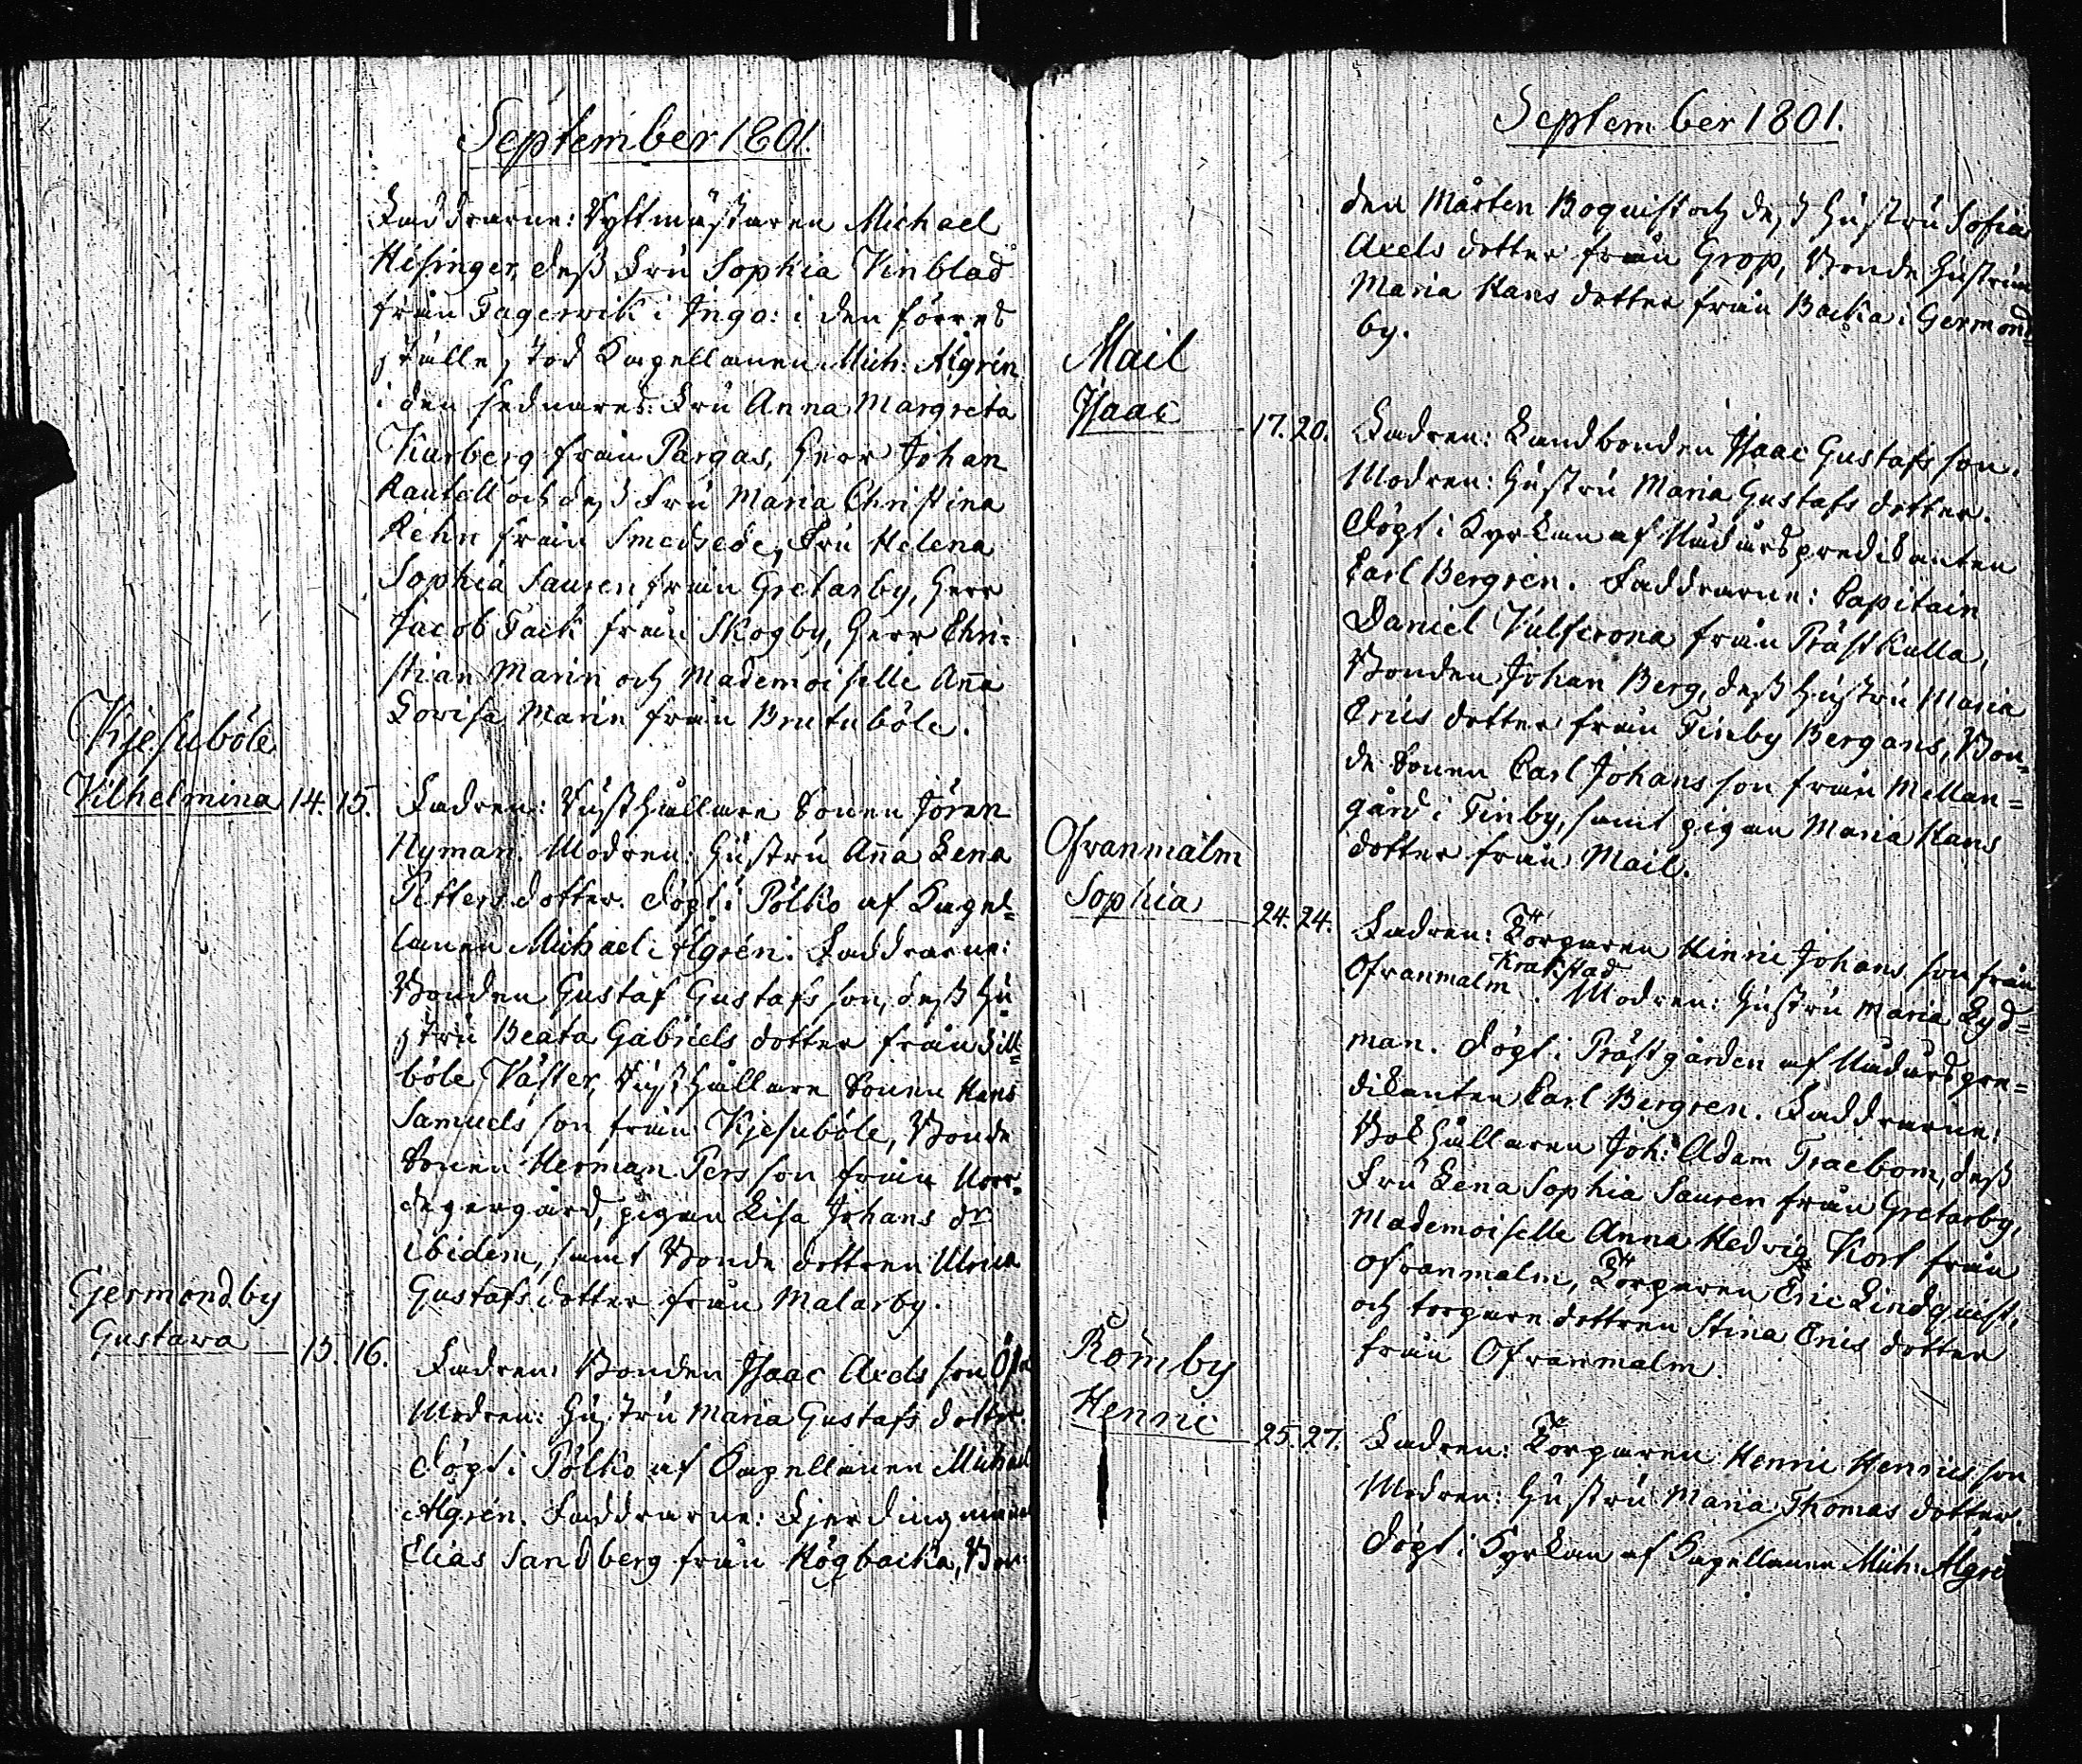 September 1801.
Faddrarne: Ryttmästaren Michael
Hisinger, dess Fru Sophia Vinblad
från Fagerwik i Ingo: i den förres
ställe stod Capellanen Mich: Algrén
i den sednares: Fru Anna Margreta
Kurberg från Pargas, Herr Johan
Rautell och dess Fru Maria Christina
Rehn från Smedsede, Fru Helena
Sophia Sauren från Gretarby, Herr
Jacob Fack från Skogby, Herr Chri=
stian Marin och Mademoiselle Aña
Lovisa Marin från Brutubôle.
Kjesubôle
Vilhelmina 14. 15. Fadren: Rusthållare Sonen Jören
Nyman. Modren: Hustru Aña Lena
Petters dotter. Döpt i Pölkö af Capel=
lanen Michael Algrén. Faddrarne:
Bonden Gustaf Gustafs son, dess Hu
stru Beata Gabriels dotter från Sill=
bôle Väster, Rusthållare Sonen Hans
Samuels son från Kjesubôle, Bonde
Sonen Herman Pers son från Norr=
degergård, pigan Lisa Johans dr
ibidem, samt Bonde dottren Ulrica
Gustafs dotter från Malarby.
Germondby
Gustava 15. 16. Fadren: Bonden Isaac Axels son
Modren: Hustru Maria Gustafs dotter.
Döpt i Pölkö af Capellanen Michael
Algrén. Faddrarne: Fjerdingman
Elias Sandberg från Högbacka, Bon
September 1801.
den Mårten Boquist och dess Hustru Sofia
Axels dotter från Grop, Bonde Hustrun
Maria Hans dotter från Backa i Germond
by.
Mail
Isaac 17. 20. Fadren: Landbonden Isaac Gustafs son.
Modren: Hustru Maria Gustafs dotter.
Döpt i Kyrkan af Nådårspredikanten
Carl Bergren. Faddrarne: Capitain
Daniel Vulfcrona från Prästkulla,
Bonden Johan Berg, dess Hustru Maria
Erics dotter från Finby Bergans, Bon=
de Sonen Carl Johans son från Mellan=
gård i Finby, samt pigan Maria Hans
dotter från Mail.
Ofvanmalm
Sophia 24. 24. Fadren: Torparen Hinric Johans son från
Krakstad
Ofvanmalm. Modren: Hustru Maria Lyd=
man. Döpt i Prästgården af Nådårspre=
dikanten Carl Bergren. Faddrarne:
Bokhållaren Joh: Adam Traebom, dess
Fru Lena Sophia Sauren från Gretarby,
Mademoiselle Anna Hedvig Korl från
Ofvanmalm, Torparen Eric Lindquist,
och torpare dottren Stina Erics dotter
från Ofvanmalm.
Römby
Henric 25. 27. Fadren: Torparen Henric Henrics son
Modren: Hustru Maria Thomas dotter.
Döpt i Kyrkan af Capellanen Mich: Algré